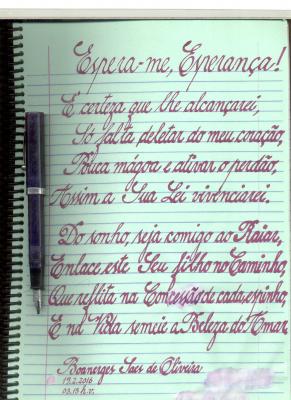 Espera-me, Esperança!
E certeza que lhe alcançarei,
Só falta deletar do meu coração,
Pouca mágoa e ativar o perdão,
Assim a Sua Lei vivenciarei.
Do sonho, seja comigo ao Raiar,
Enlace este Seu filho no Caminho,
Que reflita na Concessão de cada espinho,
E na Vida semeie a Beleza do Amar
Boanerges Saes de Oliveira
19.2.2016
03,13 h.v.